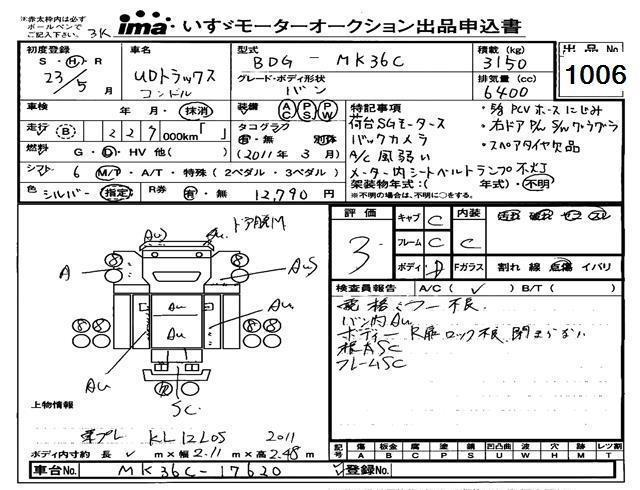 ※赤太枠内は必ず
ボールペンで
ご記入下さい。
3K
ima いすゞモーターオークション出品申込書
初度登録
S・H・R
23/5月
車名
UDトラックス
コンドル
型式
BDG - MK36C
グレード・ボディ形状
バン
積載(kg)
3150
排気量(cc)
6400
出品No
1006
車検
年 月・抹消
走行 B 227 000km「 」
燃料 G・D・HV 他( )
シフト 6 M/T・A/T・特殊(2ペダル・3ペダル)
色 シルバー 指定 R券 有・無 12,790円
装備 AC PS PW
タコグラフ
有・無 別体
(2011年3月)
特記事項
荷台SGモータース
バックカメラ
A/C風弱い
メーター内シートベルトランプ不灯
架装物年式:( 年式)・不明
※不明の場合は、不明に○をする。
・PCVホースにじみ
・スペアタイヤ欠品
評価
3
キャブ C
フレーム C
ボディ・D
内装 C
Fガラス 割れ 線 点傷 イバリ
検査員報告 A/C( ✓ ) B/T( )
電格ミラー不良
バン内Au
ボディーR扉ロック不良 閉まらない
根太SC
フレームSC
Au
Au
⑧
⑧
A
AuS
Au
Au
Au
Au
⑧⑧
⑧⑧
SC
上物情報
東プレ KL12L0S 2011
ボディ内寸約 長 ✓ m×幅 2.11 m×高 2.48 m
記号
傷 板金 腐 塗 錆 凹凸曲 波 穴 跡 レツ割
A B C P S U W H M T
車台No. MK36C-17620
登録No.